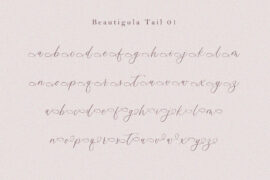 Beautigula Tail 01
a b c d e f g h i j k l m
n o p q r s t u v w x y z
a b c d e f g h i j k l m
n o p q r s t u v w x y z